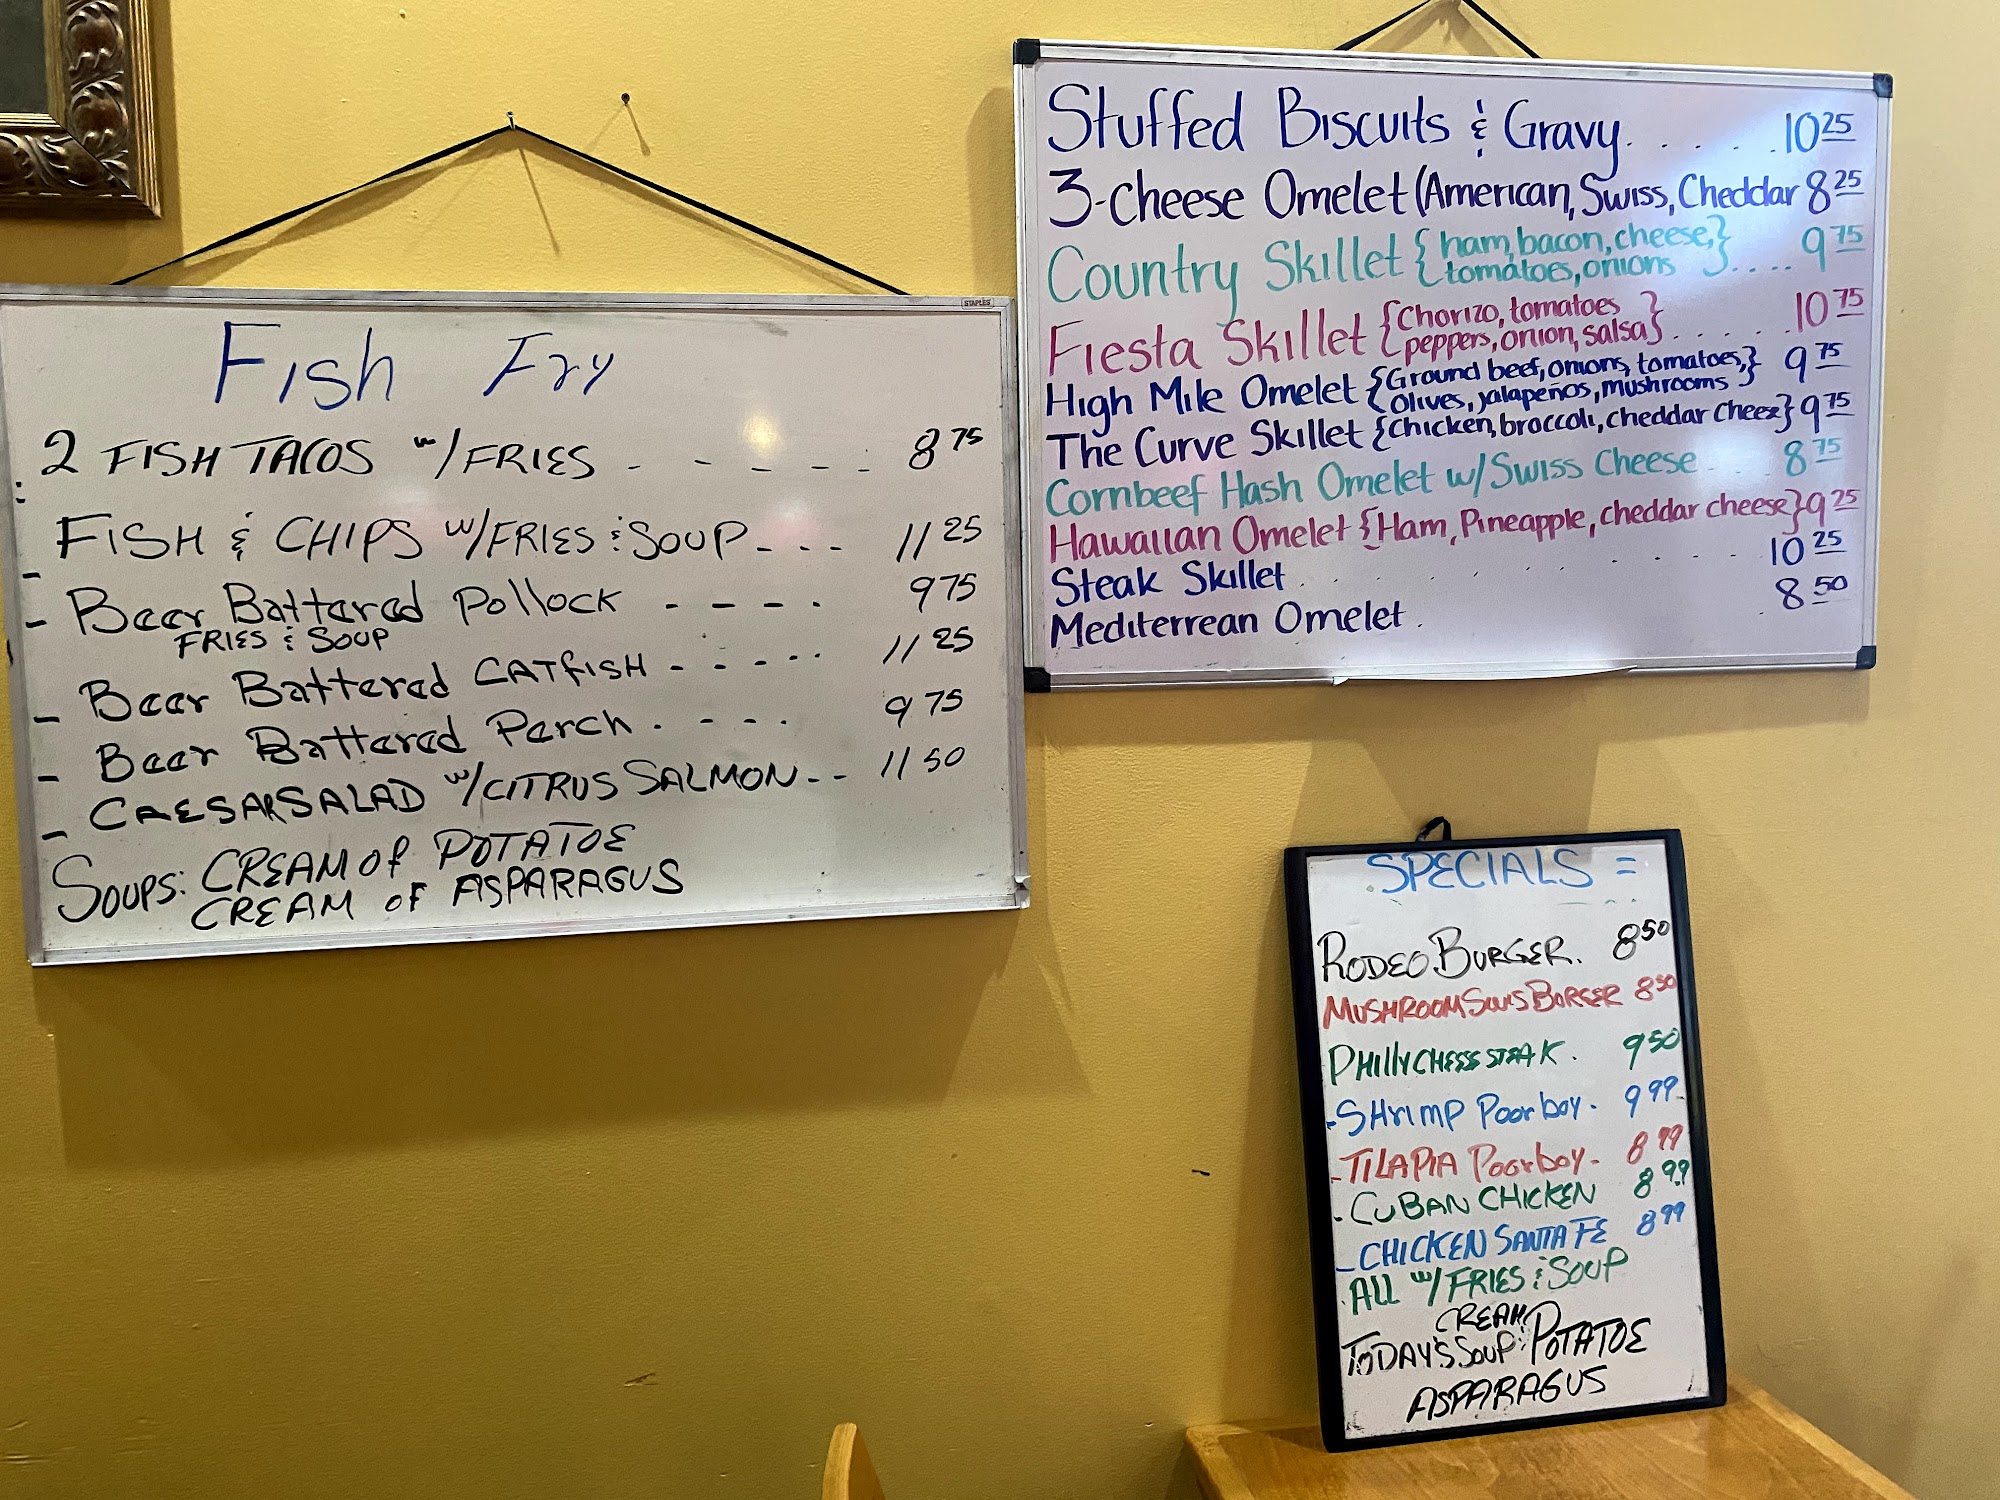 STAPLES
Fish Fry
2 FISH TACOS w/FRIES - - - - - - 8 75
FISH & CHIPS w/FRIES & SOUP - - - 11 25
- Beer Battered Pollock - - - - 9 75
FRIES & SOUP
- Beer Battered CATFISH - - - - - 11 25
- Beer Battered Perch . - - - 9 75
- CAESAR SALAD w/CITRUS SALMON - - 11 50
SOUPS: CREAM OF POTATOE
CREAM OF ASPARAGUS
Stuffed Biscuits & Gravy. . . . . 10 25
3-Cheese Omelet (American, Swiss, Cheddar 8 25
Country Skillet {ham, bacon, cheese,
tomatoes, onions} .... 9 75
Fiesta Skillet {Chorizo, tomatoes
peppers, onion, salsa} . . . . . 10 75
High Mile Omelet {Ground beef, onions, tomatoes,
Olives, jalapeños, mushrooms} 9 75
The Curve Skillet {Chicken, broccoli, cheddar cheez} 9 75
Cornbeef Hash Omelet w/Swiss Cheese . . . 8 75
Hawaiian Omelet {Ham, Pineapple, cheddar cheese} 9 25
Steak Skillet . . . . . . . . . 10 25
Mediterrean Omelet . . 8 50
SPECIALS =
RODEO BURGER. 8 50
MUSHROOM SWIS BORGER 8 50
PHILLY CHEESE STEAK. 9 50
-SHrimp Poor boy. 9 99
-TILAPIA Poor boy. 8 99
-CUBAN CHICKEN 8 99
-CHICKEN SANTA FE 8 99
ALL w/FRIES & SOUP
CREAM
TODAY'S SOUP: POTATOE
ASPARAGUS